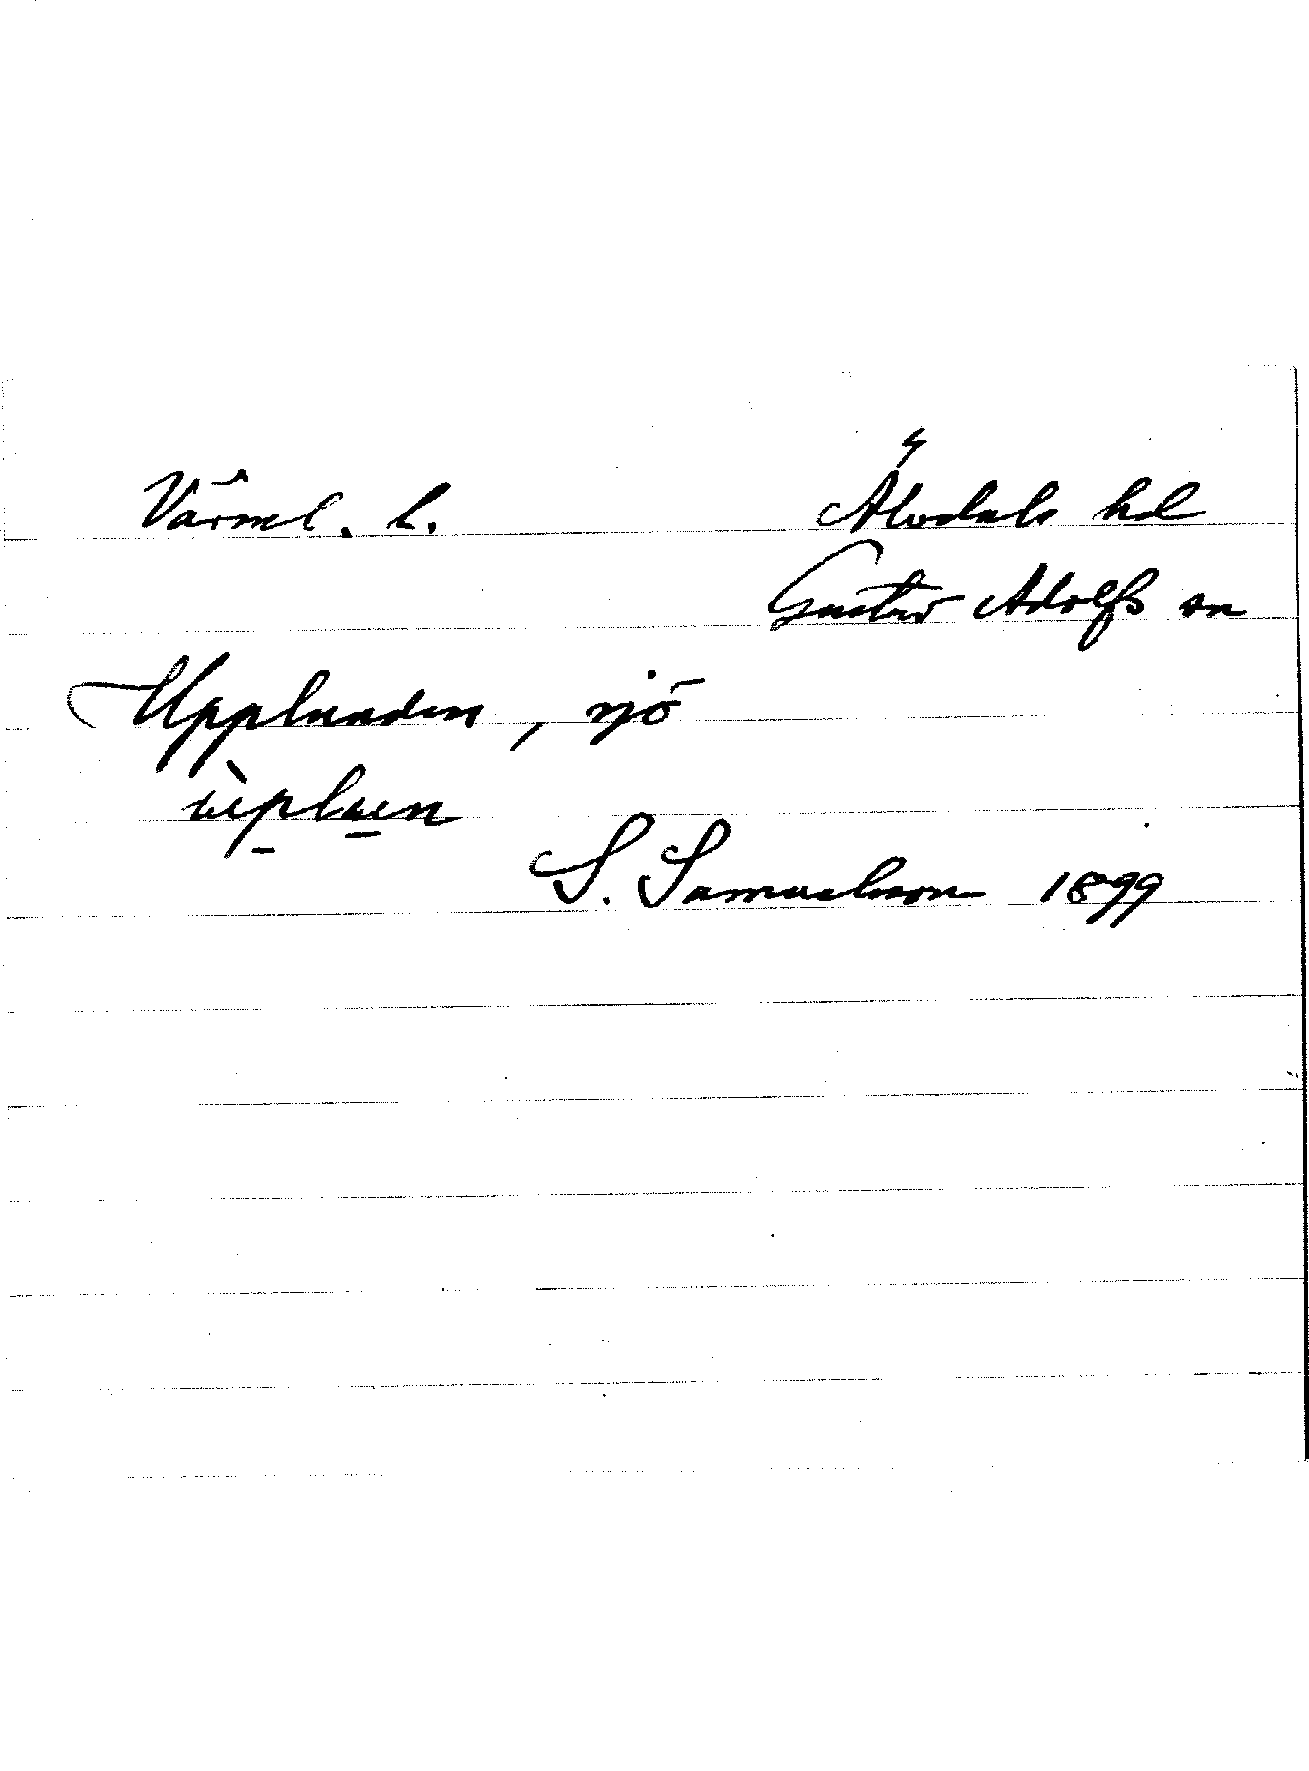 Värml. l.
Älvdals hd
Gustav Adolfs sn
Upplunden, sjö
S. Samuelsson 1899